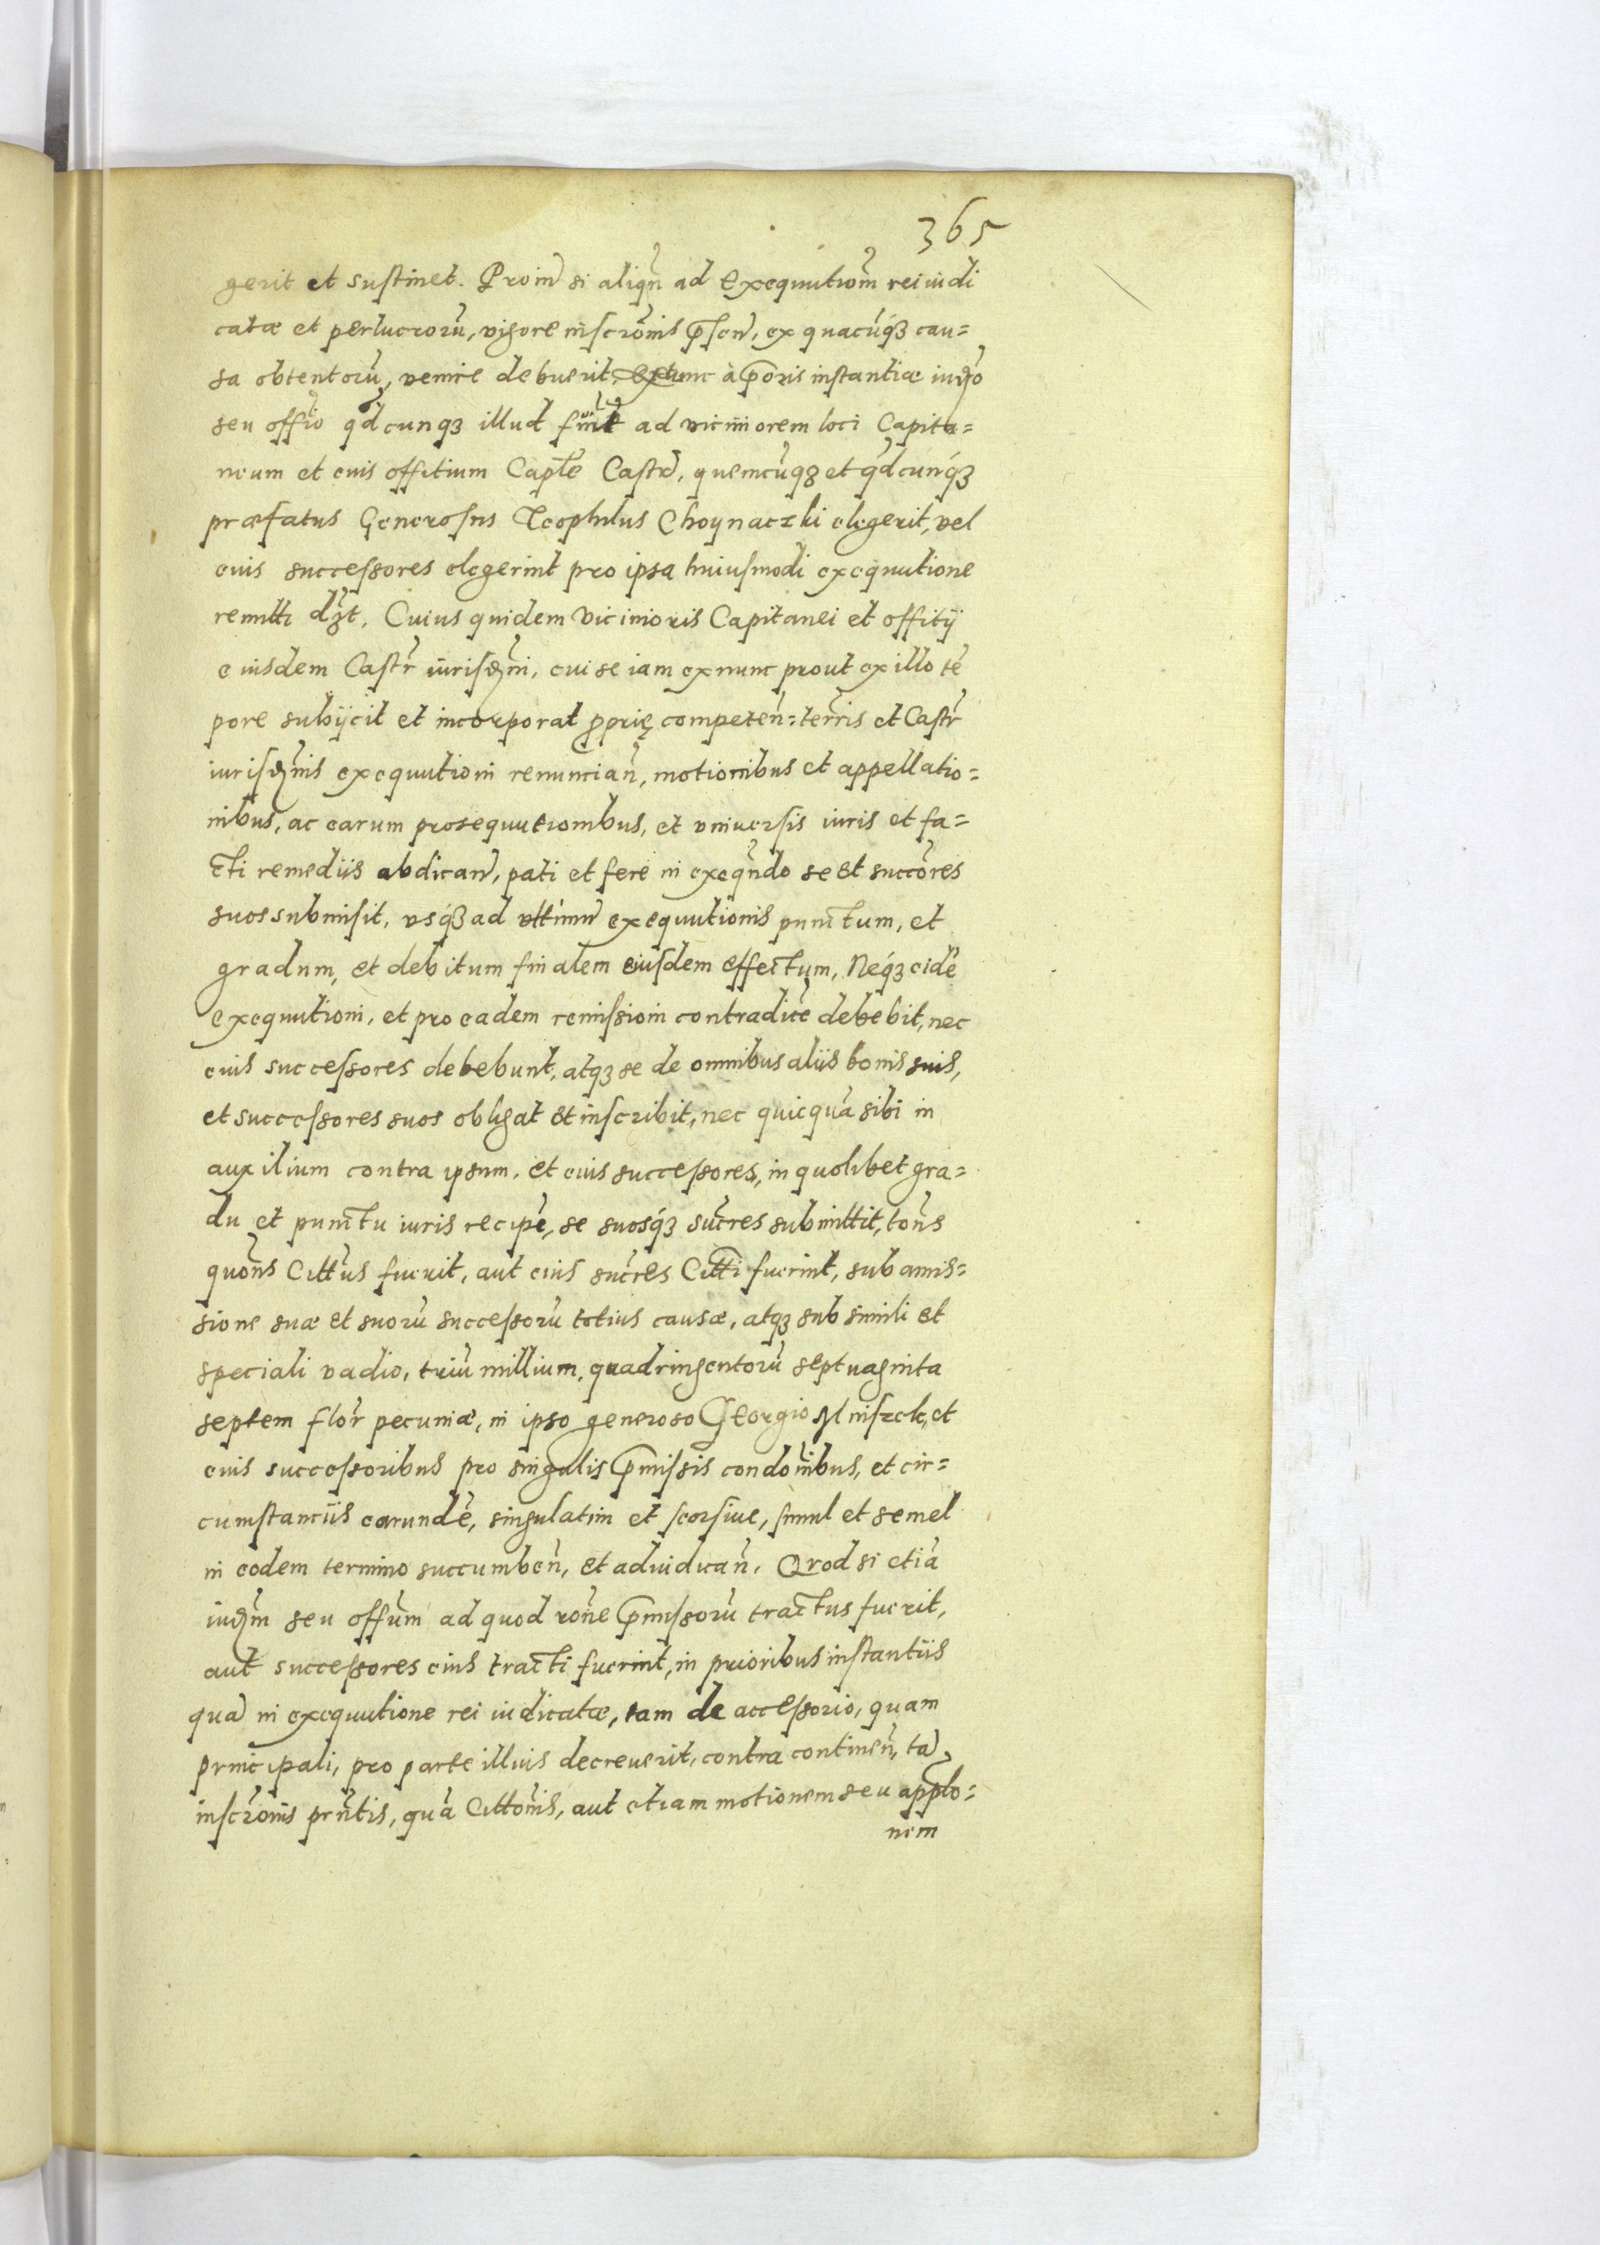 365
gerit et sustinet. Proin̄ si aliqn̄ ad exequutiom̄ rei iudi
catæ et perlucrorū, vigore inscrōnis p̄sen̄, ex quacūq̨ cau=
sa obtentorū, venire debuerit, extunc à p̄oris instantiæ iudō
seu offīo qd̄cunqꝫ illud ad viciniorem loci Capita=
neum et eius offitium Caple Castr̄, quemcūqꝫ et qd̄cunqꝫ
præfatus Generosus Teophilus Choynaczki elegerit, vel
eius successores elegerint pro ipsa huiusmodi exequutione
remitti dꝫt. Cuius quidem vicinioris Capitanei et offitÿ
eiusdem Castr̄ iurisdn̄i, cui se iam exnunc prout ex illo tē
pore subÿcit et incorporat ꝓprię competen̄: terris et Castr̄
iurisdn̄is exequutioni renuncian̄, motionibus et appellatio=
nibus, ac earum prosequutionibus, et vniuersis iuris et fa=
cti remediis abdican̄, pati et fere in exeqn̄do se et succōres
suos submisit, vsqꝫ ad vltimū exequutionis punctum, et
gradum, et debitum finalem eiusdem effectum, Neqꝫ eidē
exequutioni, et pro eadem remissioni contradicē debebit, nec
eius successores debebunt, atqꝫ se de omnibus aliis bonis suis,
et successores suos obligat et inscribit, nec quicquā sibi in
auxilium contra ipsum, et eius successores, in quolibet gra=
du et punctu iuris recipē, se suosqꝫ sucr̄es submittit, tōns
quōns Cittūs fuerit, aut eius sucr̄es Citti fuerint, sub amis=
sione suæ et suorū successorū totius causæ, atqꝫ sub simili et
speciali vadio, triū millium, quadringentorū septuaginta
septem flor̄ pecuniæ, in ipso generoso Georgio Mniszek, et
eius successoribus pro singulis p̄missis condōnibus, et cir=
cumstanciis earundē, singulatim et seorsiue, simul et semel
in eodem termino succumben̄, et adiudican̄. Quod si etiā
iudm̄ seu offūm ad quod rōne p̄missorū tractus fuerit,
aut successores eius tracti fuerint, in prioribus instantiis
quā in exequutione rei iudicatæ, tam de accessorio, quam
principali, pro parte illius decreuerit, contra continen̄, tā
inscrōnis prn̄tis, quā Cittōnis, aut etiam motionem seu applo=
nem